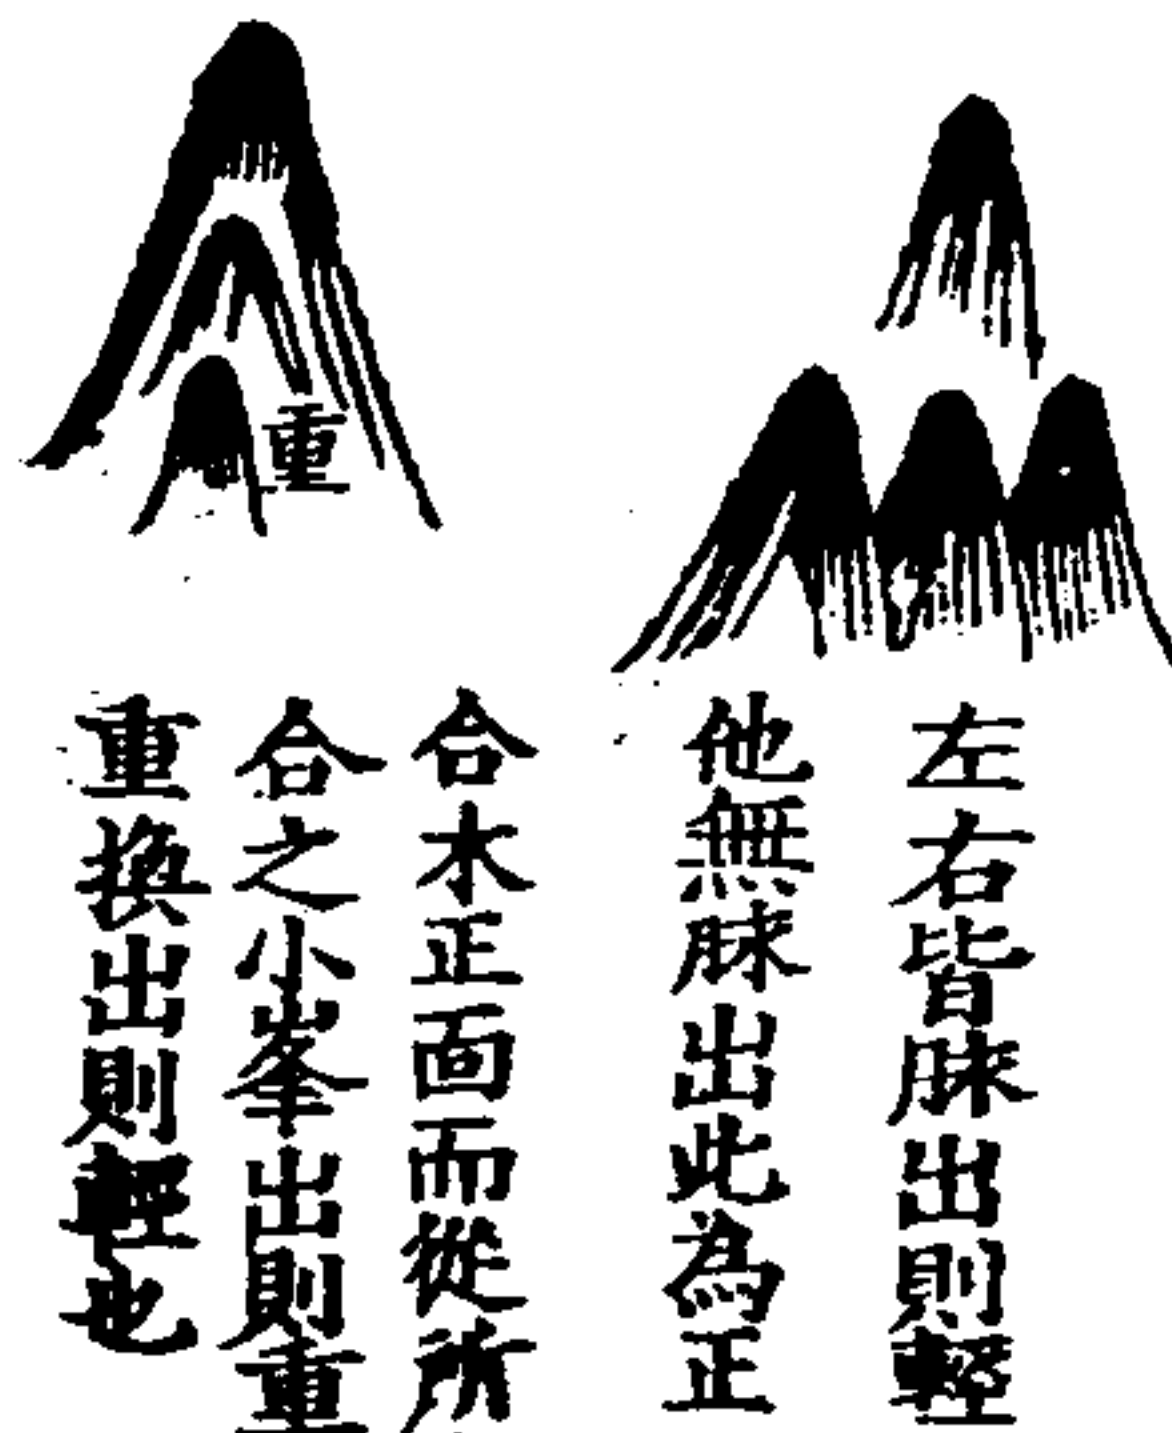 左右皆脉出則輕
他無脉出此為正
合木正面而從所
合之小峯出則重
重換出則輕也
重